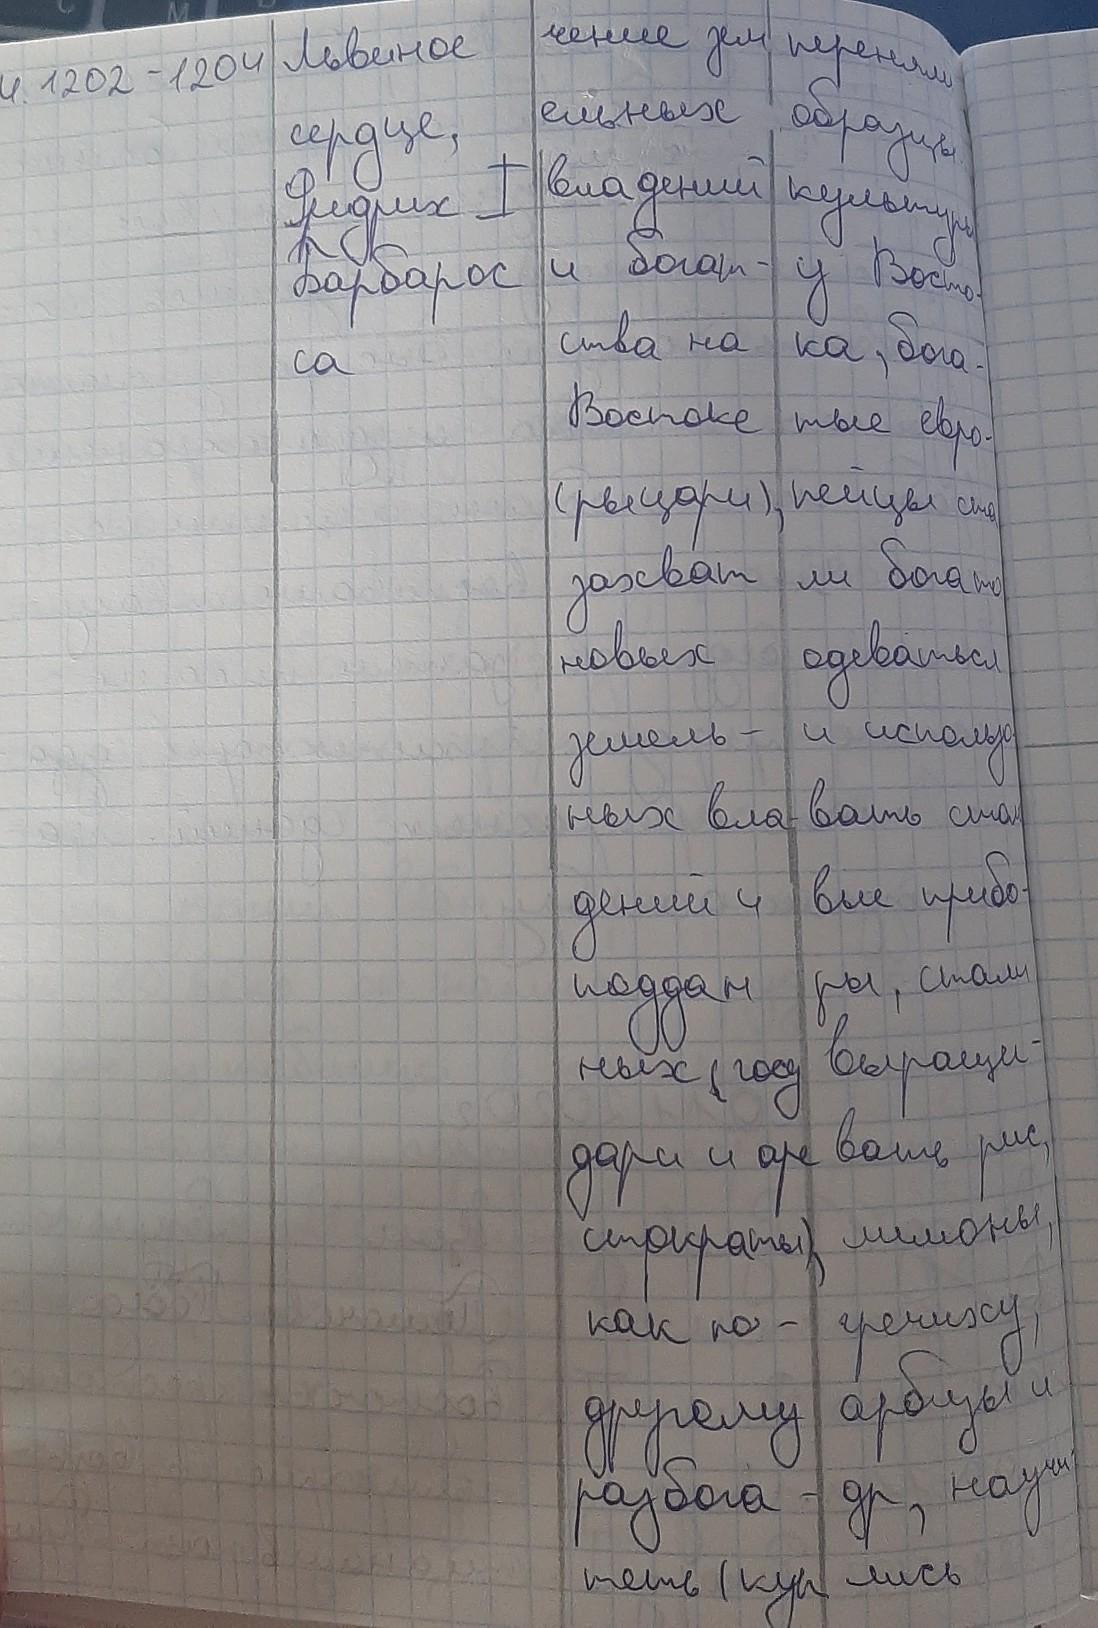 4. 1202-1204
Львиное
сердце,
Фридрих I
Барбарос
са
чение зем
ельных
владений
и богат-
ства на
Востоке
(рыцари),
захват
новых
земель-
ных вла-
дений и
поддан
ных (госу
дари и ари
стократы),
как по-
другому
разбога-
теть (куп
переняли
образцы
культуры
у Восто-
ка, бога-
тые евро-
пейцы ста
ли богато
одеваться
и использо
вать стол
вые прибо-
ры, стали
выращи-
вать рис,
лимоны,
гречиху,
арбузы и
др, научи
лись